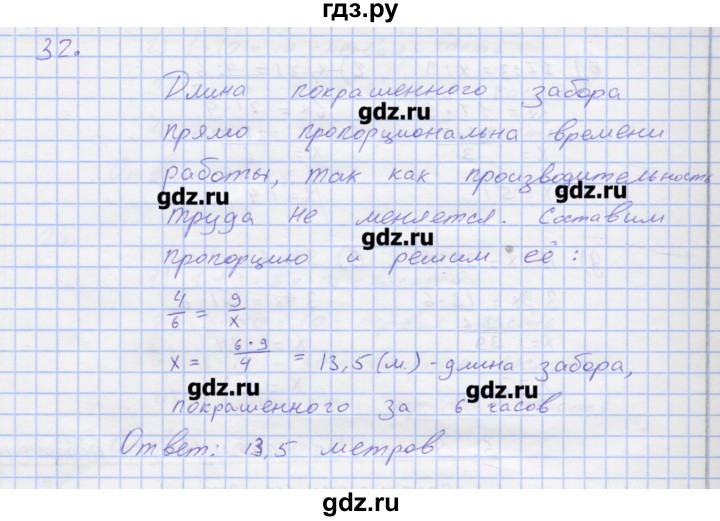 гдз.ру
32.
Длина покрашенного забора
gdz.ru
прямо пропорциональна времени
работы, так как производительность
gdz.ru gdz.ru
труда не меняется. Составим
gdz.ru
пропорцию и решим её:
4/6 = 9/x
x = 6·9/4 = 13,5 (м) - длина забора,
gdz.ru gdz.ru
покрашенного за 6 часов
Ответ: 13,5 метров
gdz.ru